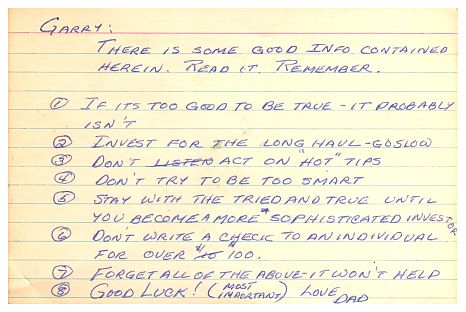 GARRY:
THERE IS SOME GOOD INFO CONTAINED
HEREIN. READ IT. REMEMBER.
① IF ITS TOO GOOD TO BE TRUE - IT PROBABLY
ISN'T
② INVEST FOR THE LONG HAUL - GO SLOW
③ DON'T LISTEN ACT ON "HOT" TIPS
④ DON'T TRY TO BE TOO SMART
⑤ STAY WITH THE TRIED AND TRUE UNTIL
YOU BECOME A MORE "SOPHISTICATED INVESTOR"
⑥ DON'T WRITE A CHECK TO AN INDIVIDUAL
FOR OVER $100.
⑦ FORGET ALL OF THE ABOVE - IT WON'T HELP
⑧ GOOD LUCK! (MOST IMPORTANT) LOVE DAD